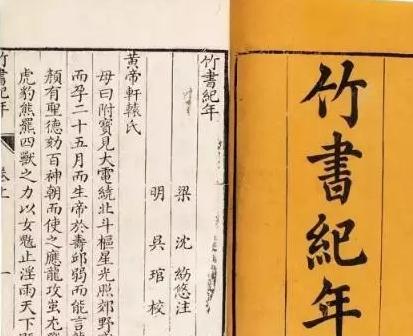 竹書紀年
竹書紀年
梁 沈 約 注
明 吳 琯 校
黃帝軒轅氏
母曰附寶見大電繞北斗樞星光照郊野
而孕二十五月而生帝於壽邱弱而能言
顏有聖德劾百神朝而使之應龍攻蚩尤
虎豹熊羆四獸之力以女魃止淫雨天下
竹書紀年 卷上 一